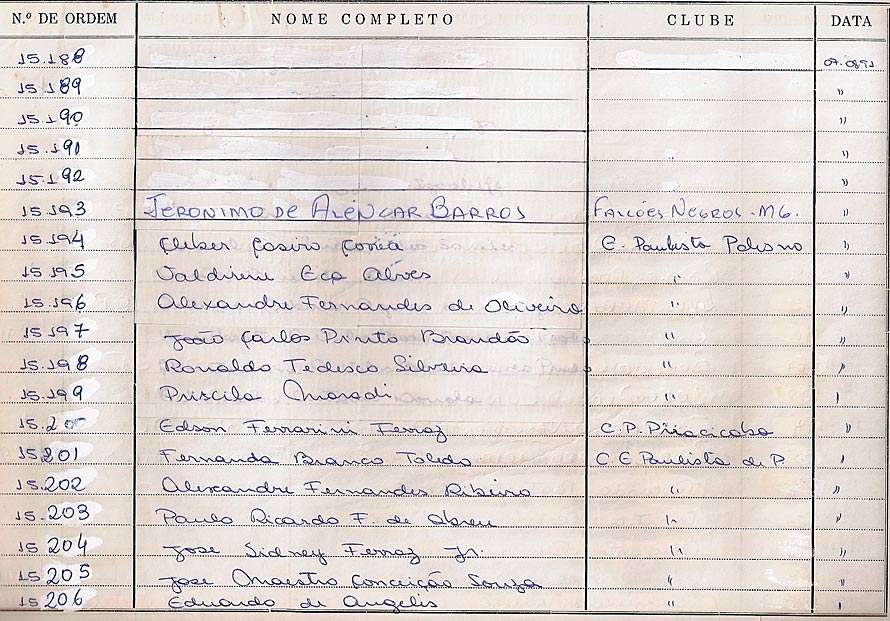 N.º DE ORDEM NOME COMPLETO CLUBE DATA
15.188 07.0891
15.189 "
15.190 "
15.191 " "
15.192 "
15.193 JERONIMO DE ALENCAR BARROS FALCÕES NEGROS - MG. "
15.194 Cleber Correa C. Paulista "
15.195 Valdirene Eça Alves " "
15.196 Alexandre Fernandes de Oliveira " "
15.197 João Carlos Pinto Brandão " "
15.198 Ronaldo Tedesco Silveira " "
15.199 Priscila " "
15.20 Edson Ferrarini Ferraz C.P. Piracicaba "
15201 Fernanda Branco Toledo C E Paulista de P. "
15.202 Alexandre Fernandes Ribeiro " "
15.203 Paulo Ricardo F. de Abreu " "
15 204 Jose Sidney Ferraz Jr. " "
15 205 Jose Maestro Conceição Souza " "
15 206 Eduardo de Angelis " "